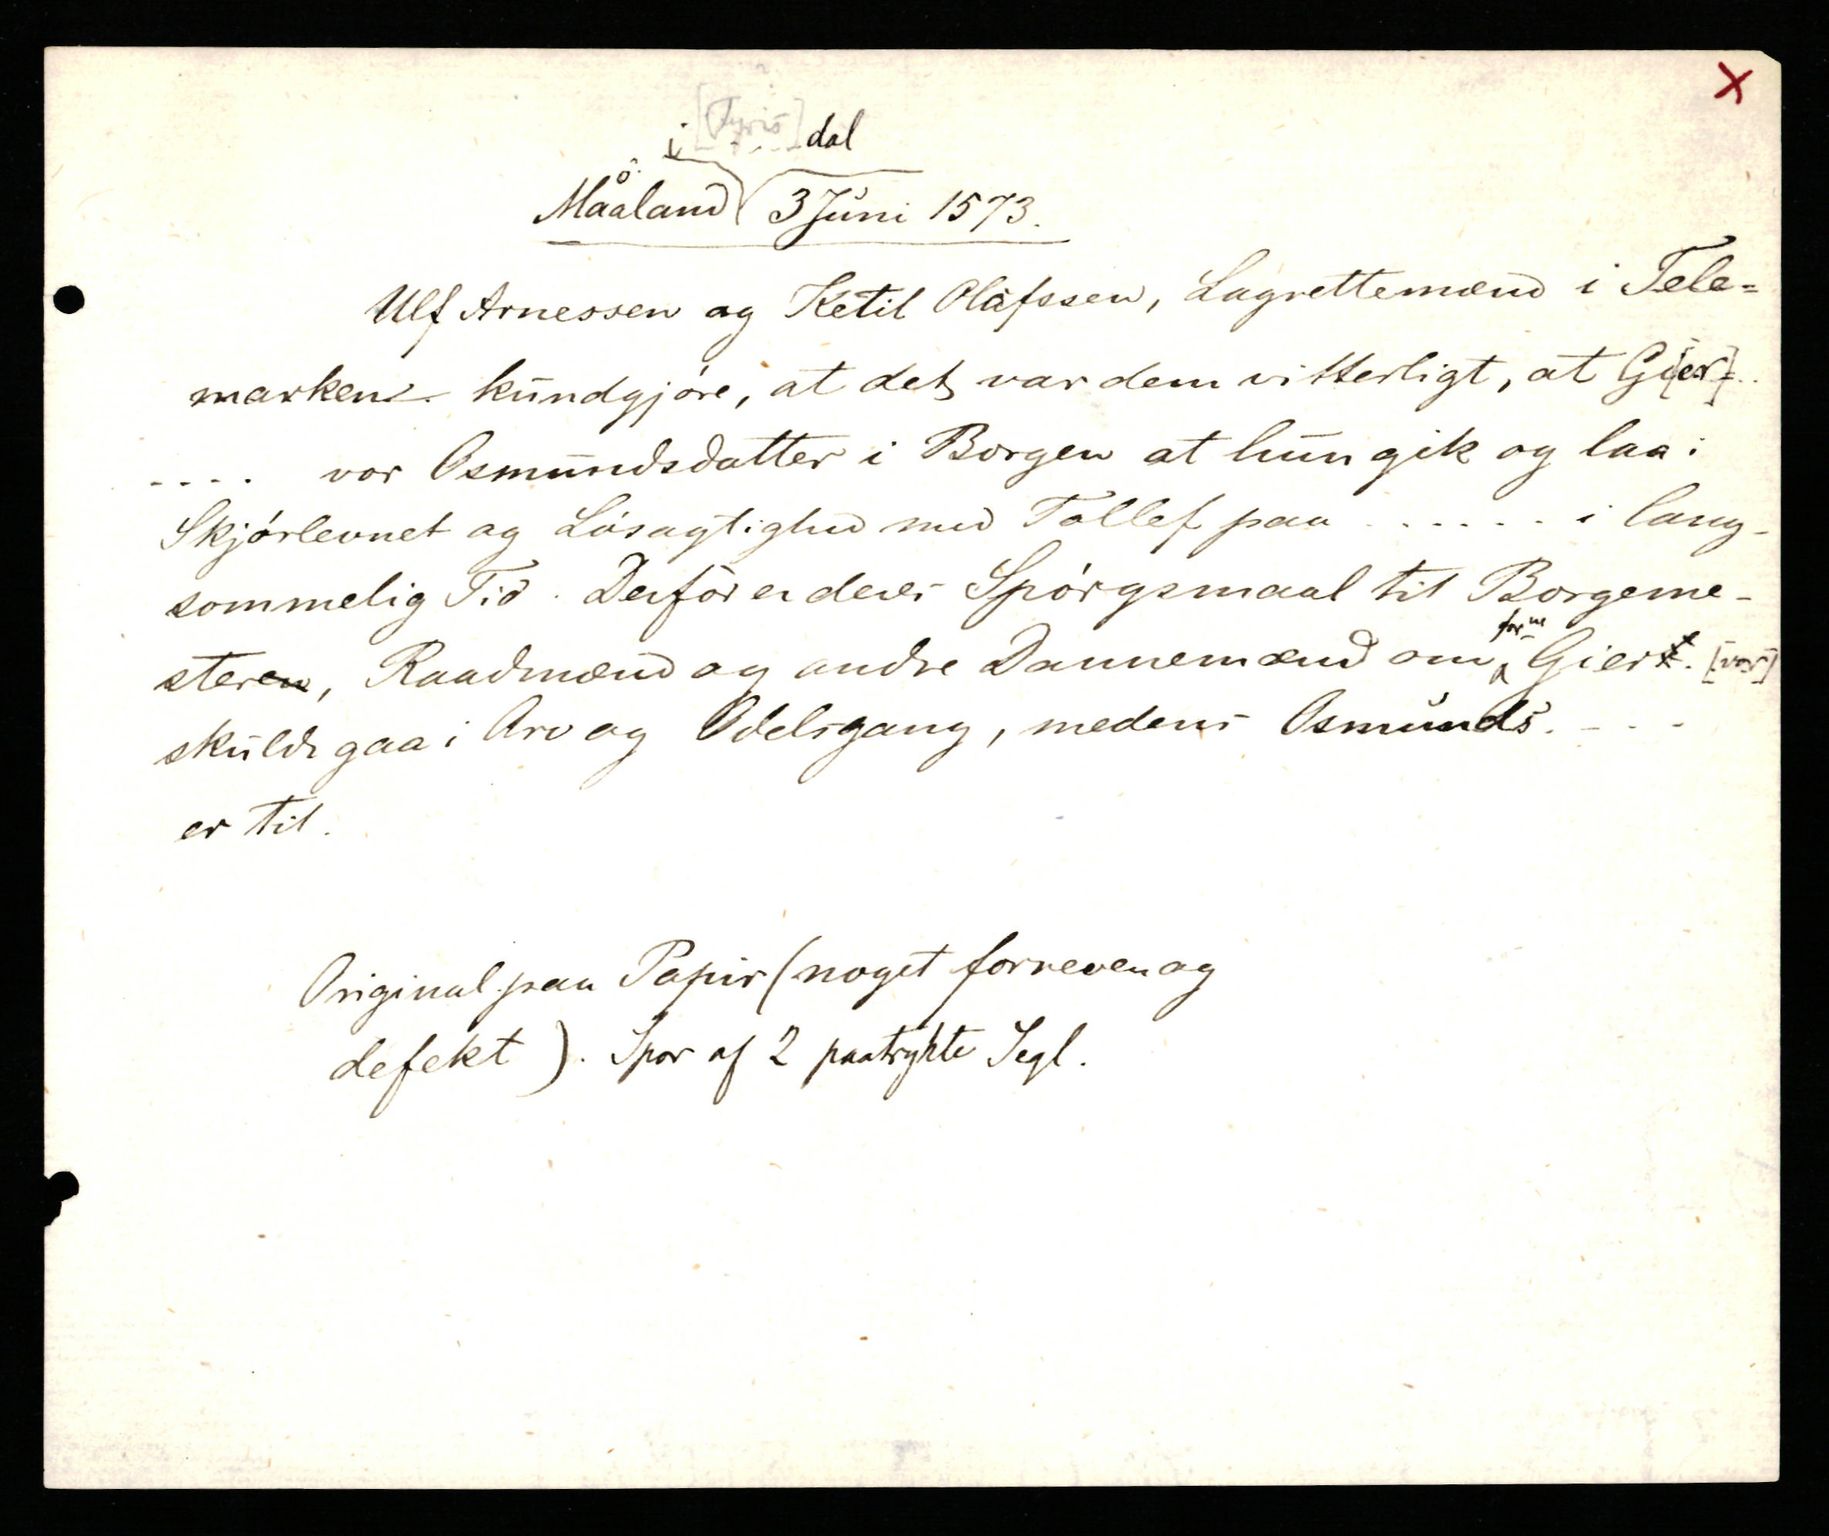 X
i [Tyris] dal
?
Maaland 3 Juni 1573.
Ulf Arnessen og Ketil Olafssen, Lagrettemænd i Tele=
marken kundgjøre, at det var dem vitterligt, at G[ier]..
.... vor Osmundsdatter i Borgen at hun gik og laa i
Skjørlevnet og Løsagtighed med Tollef paa ...... i lang-
sommelig Tid. Derfor er deres Spørgsmaal til Borgeme-
steren, Raadmænd og andre Dannemænd om forⁿᵉ Gier. [vor]
skulde gaa i Arv og Odelsgang, medens Osmunds. - - -
er til.
Original paa Papir (noget forreven og
defekt). Spor af 2 paatrykte Segl.